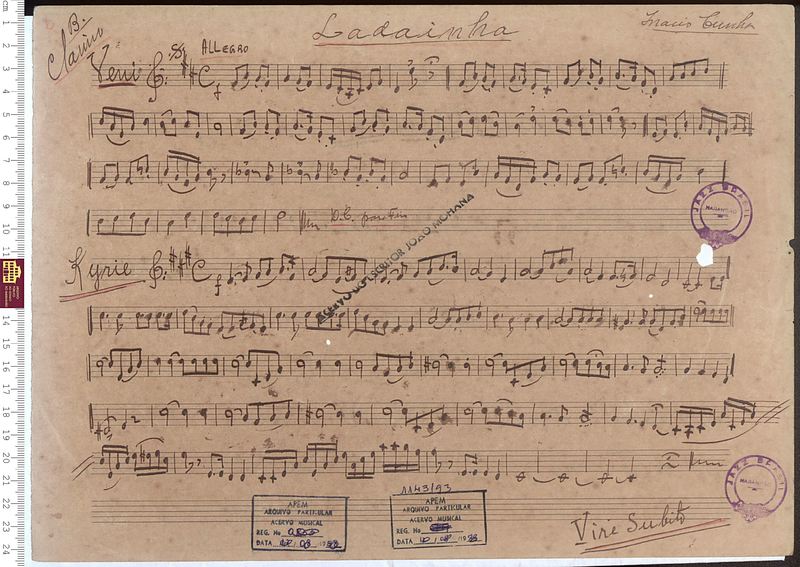 Bº Clarino
Ladainha
Inacio Cunha
Veni
ALLEGRO
f
D.C. para Fim
Kyrie
f
ACERVO DO ESCRITOR JOÃO MOHANA
JAZZ BRASIL
MARANHÃO
1143/93
APEM
ARQUIVO PARTICULAR
ACERVO MUSICAL
REG. No
DATA
APEM
ARQUIVO PARTICULAR
ACERVO MUSICAL
REG. No
DATA
Vire Subito
JAZZ BRASIL
MARANHÃO
cm 1 2 3 4 5 6 7 8 9 10 11 14 15 16 17 18 19 20 21 22 23 24